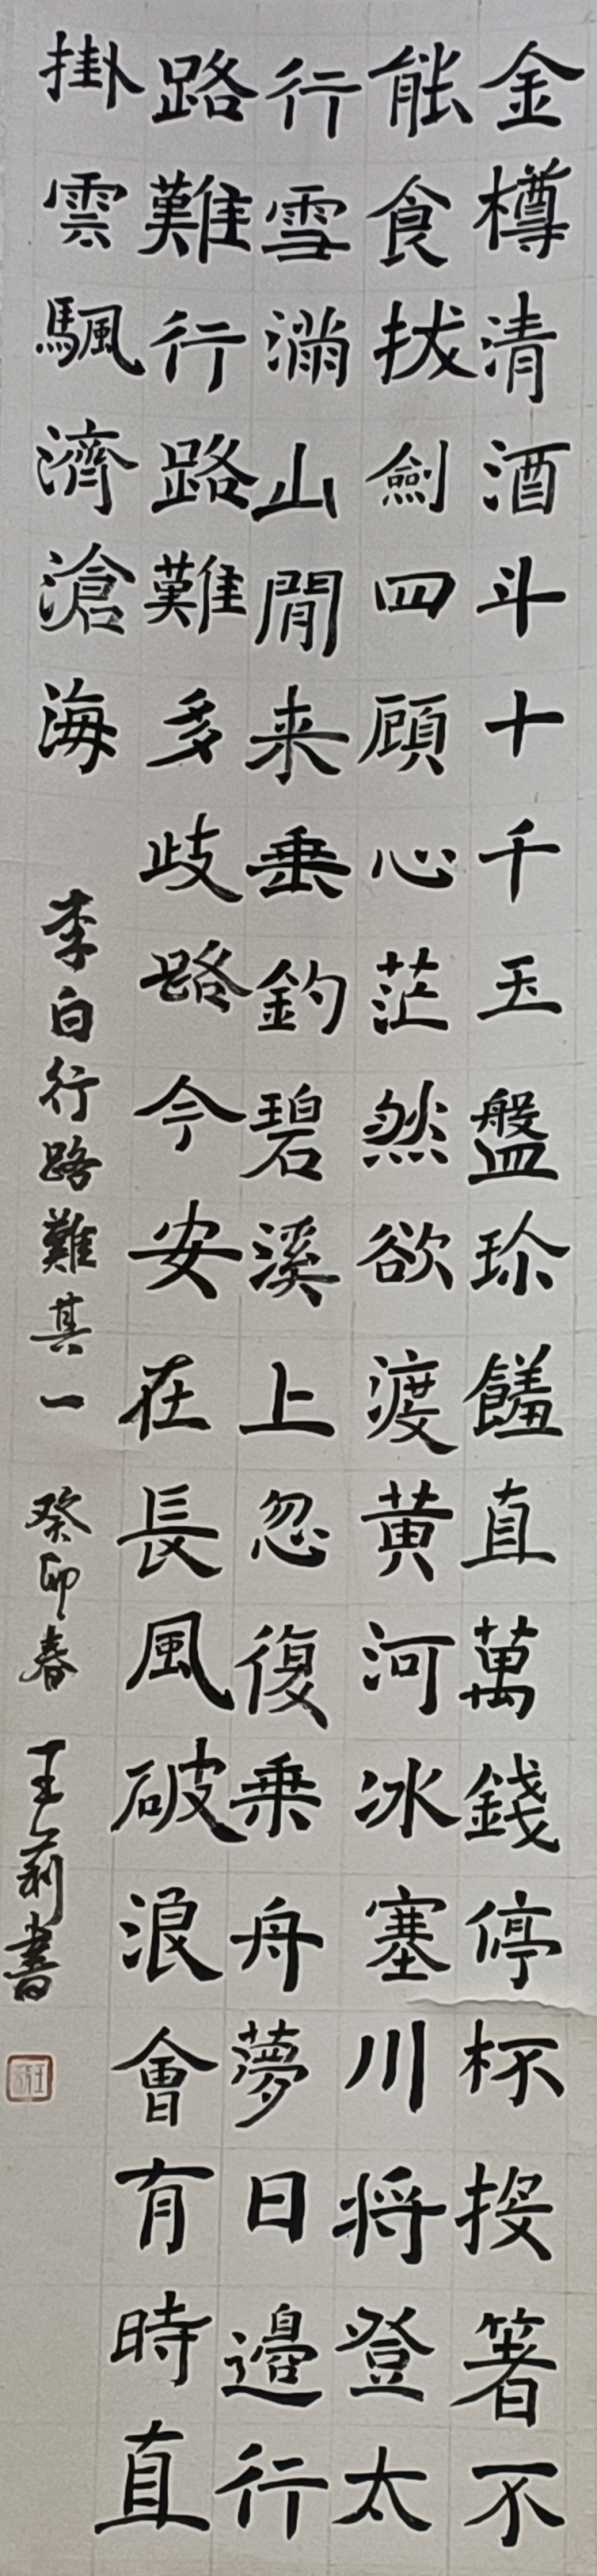 金樽清酒斗十千玉盤珎饈直萬錢停杯投箸不
能食拔劍四顧心茫然欲渡黄河冰塞川将登太
行雪滿山閒来垂釣碧溪上忽復乗舟夢日邉行
路難行路難多歧路今安在長風破浪會有時直
掛雲颿濟滄海 李白行路難其一 癸卯春 王莉書